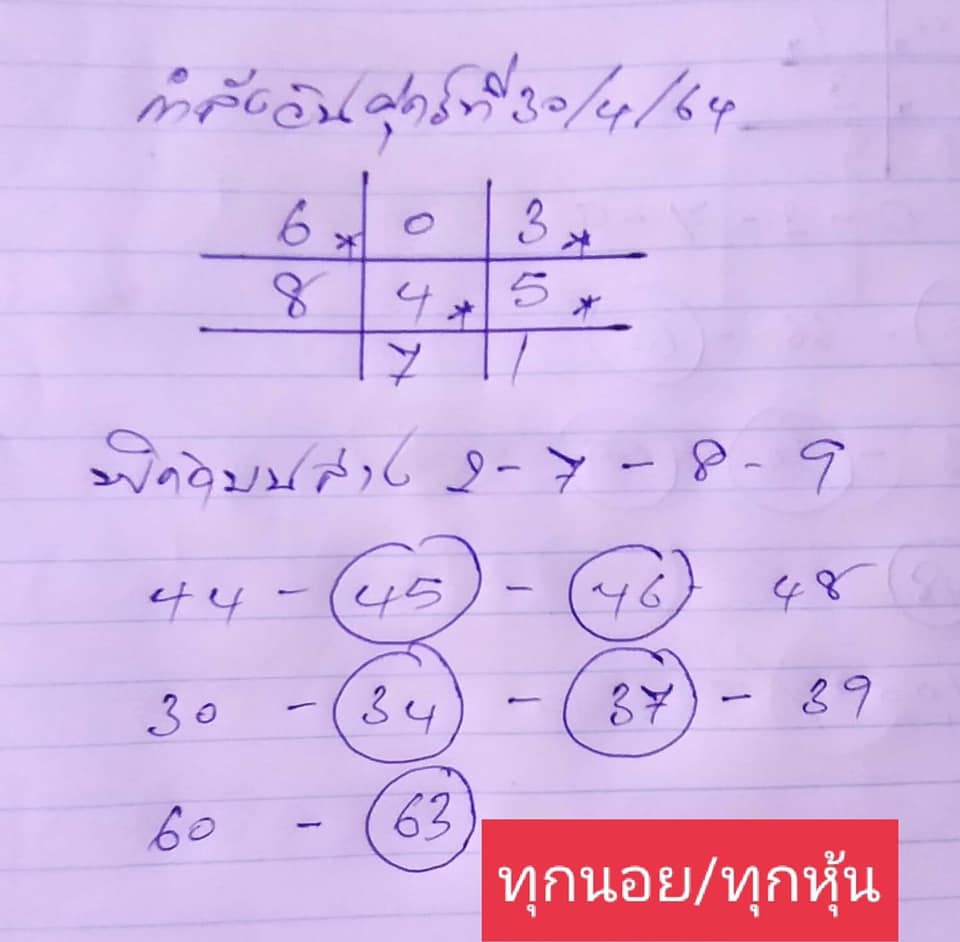 กำลังวันศุกร์ที่ 30/4/64
6* 0 3*
8 4* 5*
7 1
2 - 7 - 8 - 9
44 - 45 - 46 - 48
30 - 34 - 37 - 39
60 - 63
ทุกนอย/ทุกหุ้น